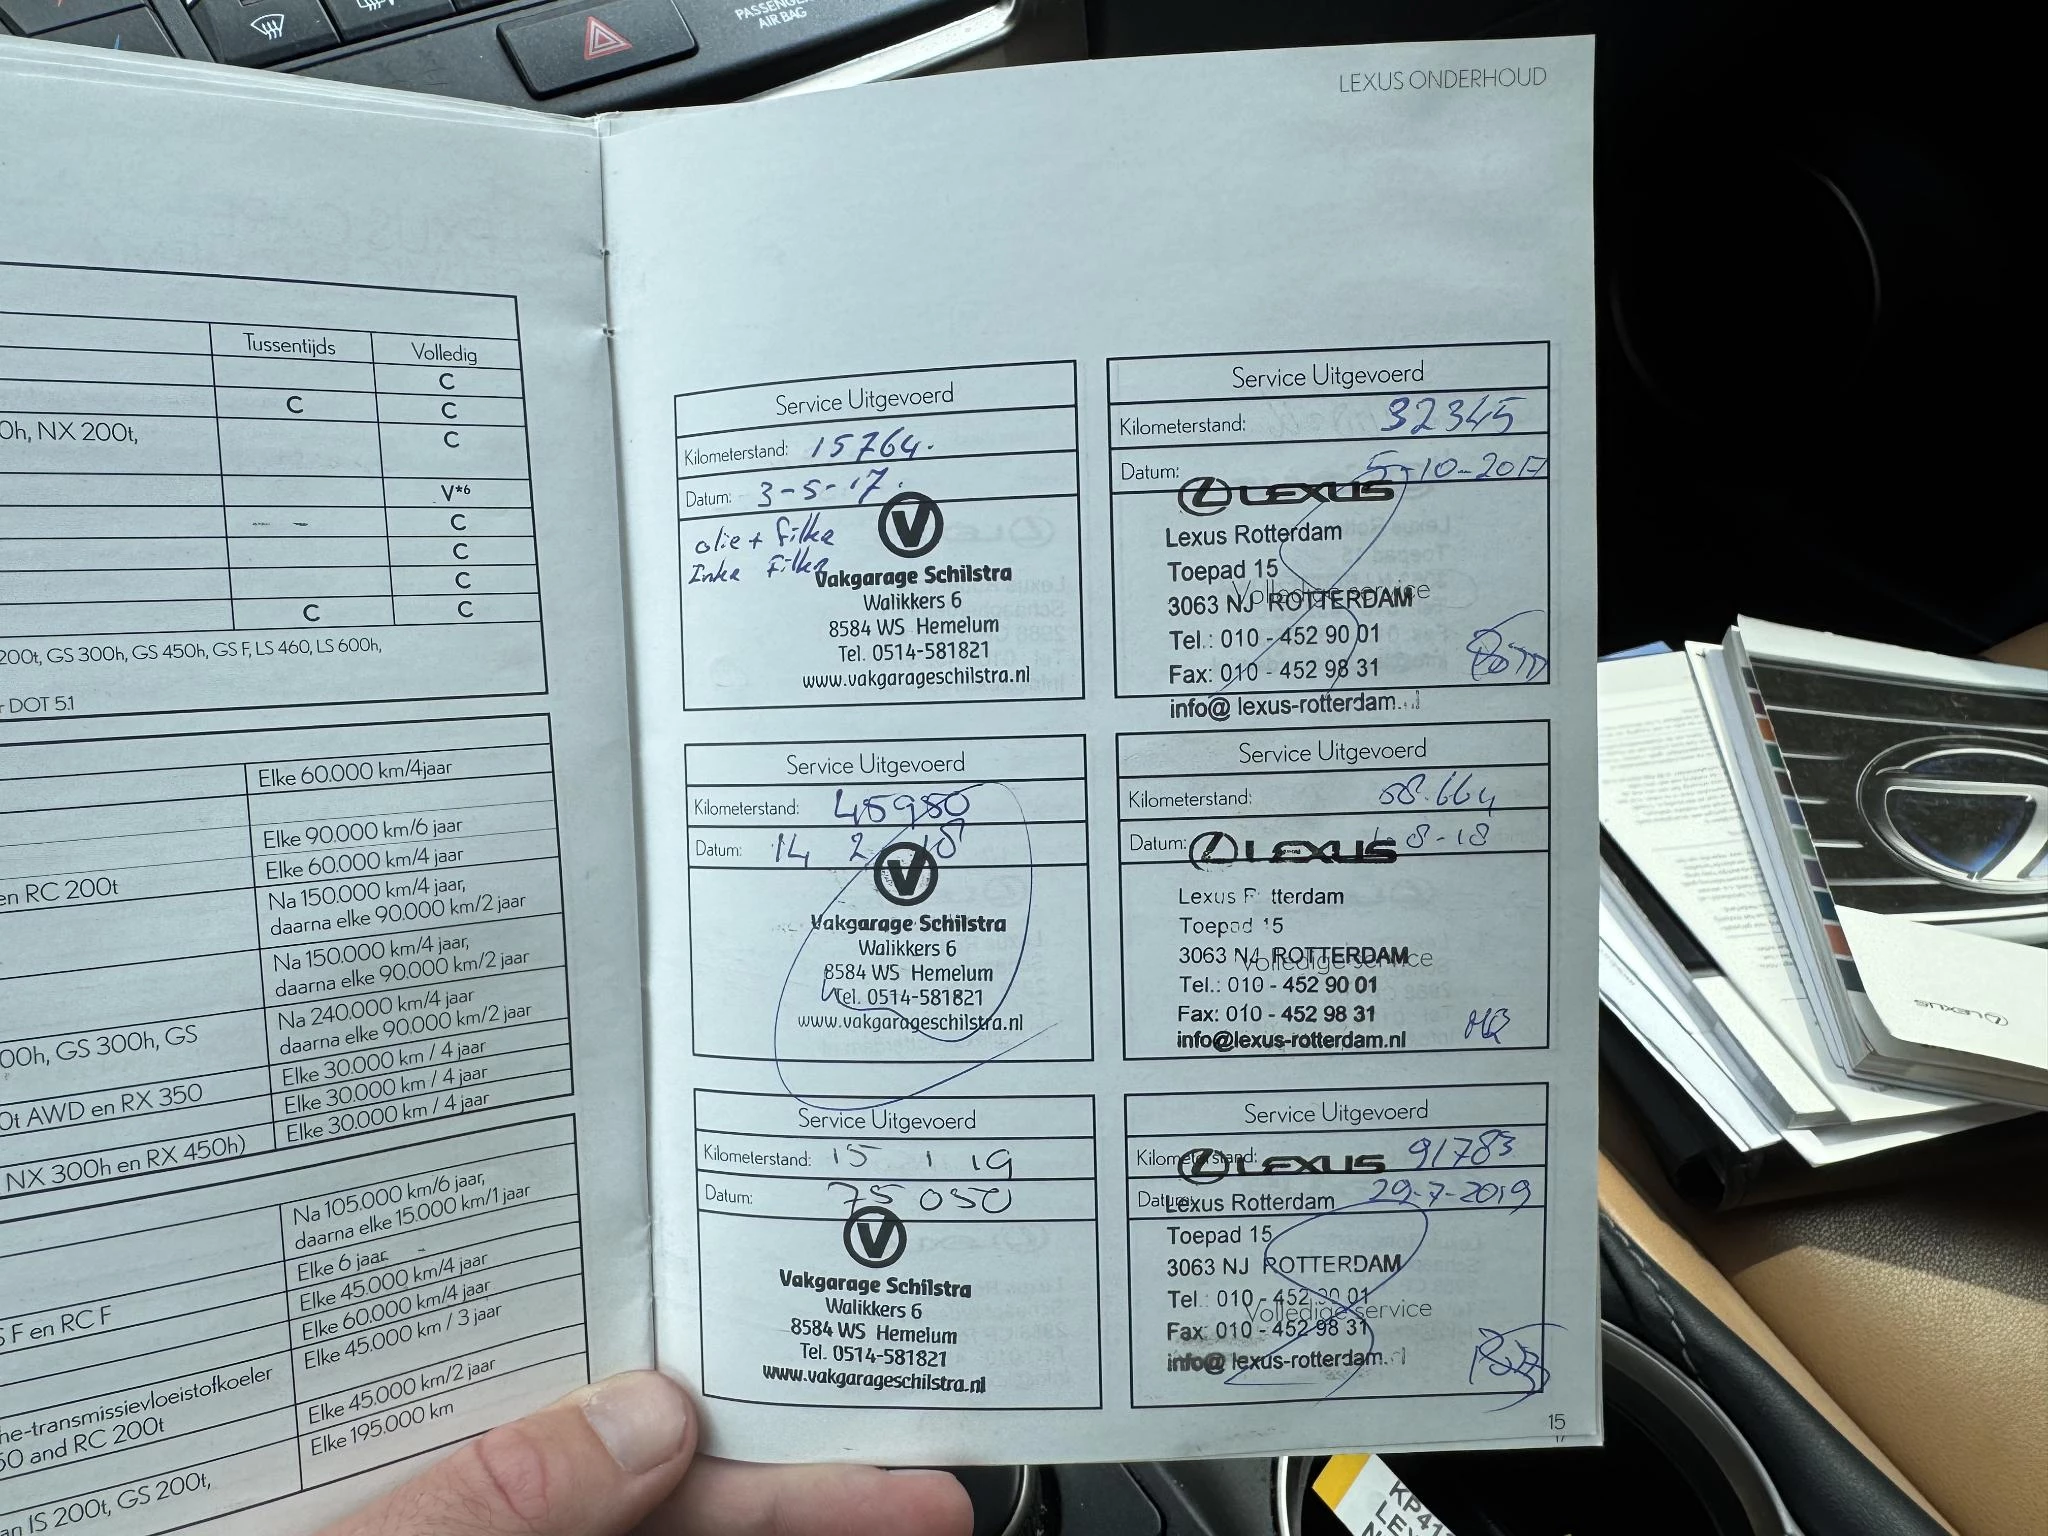 PASSENGER
AIR BAG
LEXUS ONDERHOUD
Tussentijds Volledig
C
C C
0h, NX 200t, C
V*6
C
C
C
C C
200t, GS 300h, GS 450h, GS F, LS 460, LS 600h,
r DOT 5.1
Elke 60.000 km/4jaar
Elke 90.000 km/6 jaar
en RC 200t Elke 60.000 km/4 jaar
Na 150.000 km/4 jaar,
daarna elke 90.000 km/2 jaar
Na 150.000 km/4 jaar,
daarna elke 90.000 km/2 jaar
00h, GS 300h, GS Na 240.000 km/4 jaar
daarna elke 90.000 km/2 jaar
0t AWD en RX 350 Elke 30.000 km / 4 jaar
Elke 30.000 km / 4 jaar
NX 300h en RX 450h) Elke 30.000 km / 4 jaar
Na 105.000 km/6 jaar,
daarna elke 15.000 km/1 jaar
Elke 6 jaar
S F en RC F Elke 45.000 km/4 jaar
Elke 60.000 km/4 jaar
Elke 45.000 km / 3 jaar
he-transmissievloeistofkoeler
50 and RC 200t Elke 45.000 km/2 jaar
an IS 200t, GS 200t, Elke 195.000 km
Service Uitgevoerd
Kilometerstand: 15764.
Datum: 3-5-'17.
olie + filter
Vakgarage Schilstra
Walikkers 6
8584 WS Hemelum
Tel. 0514-581821
www.vakgarageschilstra.nl
Service Uitgevoerd
Kilometerstand: 32345
Datum: 5-10-2017
LEXUS
Lexus Rotterdam
Toepad 15
Volledige service
3063 NJ ROTTERDAM
Tel.: 010 - 452 90 01
Fax: 010 - 452 98 31
info@ lexus-rotterdam.nl
Service Uitgevoerd
Kilometerstand: 45950
Datum: 14 2 18
Vakgarage Schilstra
Walikkers 6
8584 WS Hemelum
Tel. 0514-581821
www.vakgarageschilstra.nl
Service Uitgevoerd
Kilometerstand: 58.664
Datum: 8-18
LEXUS
Lexus Rotterdam
Toepad 15
3063 NJ ROTTERDAM
Volledige service
Tel.: 010 - 452 90 01
Fax: 010 - 452 98 31
info@lexus-rotterdam.nl
Service Uitgevoerd
Kilometerstand: 15 1 19
Datum: 75 050
Vakgarage Schilstra
Walikkers 6
8584 WS Hemelum
Tel. 0514-581821
www.vakgarageschilstra.nl
Service Uitgevoerd
Kilometerstand: 91783
LEXUS
Datum: 29-7-2019
Lexus Rotterdam
Toepad 15
3063 NJ ROTTERDAM
Tel.: 010 - 452 90 01
Volledige service
Fax: 010 - 452 98 31
info@ lexus-rotterdam.nl
15
17
LEXUS